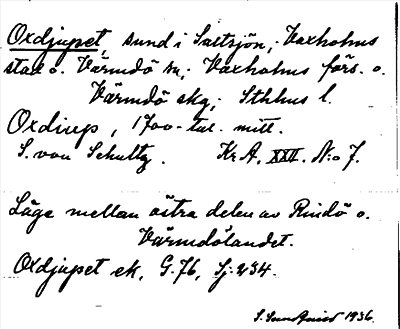 Oxdjupet, sund i Saltsjön, Vaxholms
stad o. Värmdö sn; Vaxholms förs. o.
Värmdö skg; Sthlms l.
Oxdiup, 1700-tal. mitt.
S. von Schultz. Kr.A. XXII. N:o 7.
Läge mellan östra delen av Rindö o.
Värmdölandet.
Oxdjupet ek. G.76, Sj. 234.
S. Sundquist 1936.